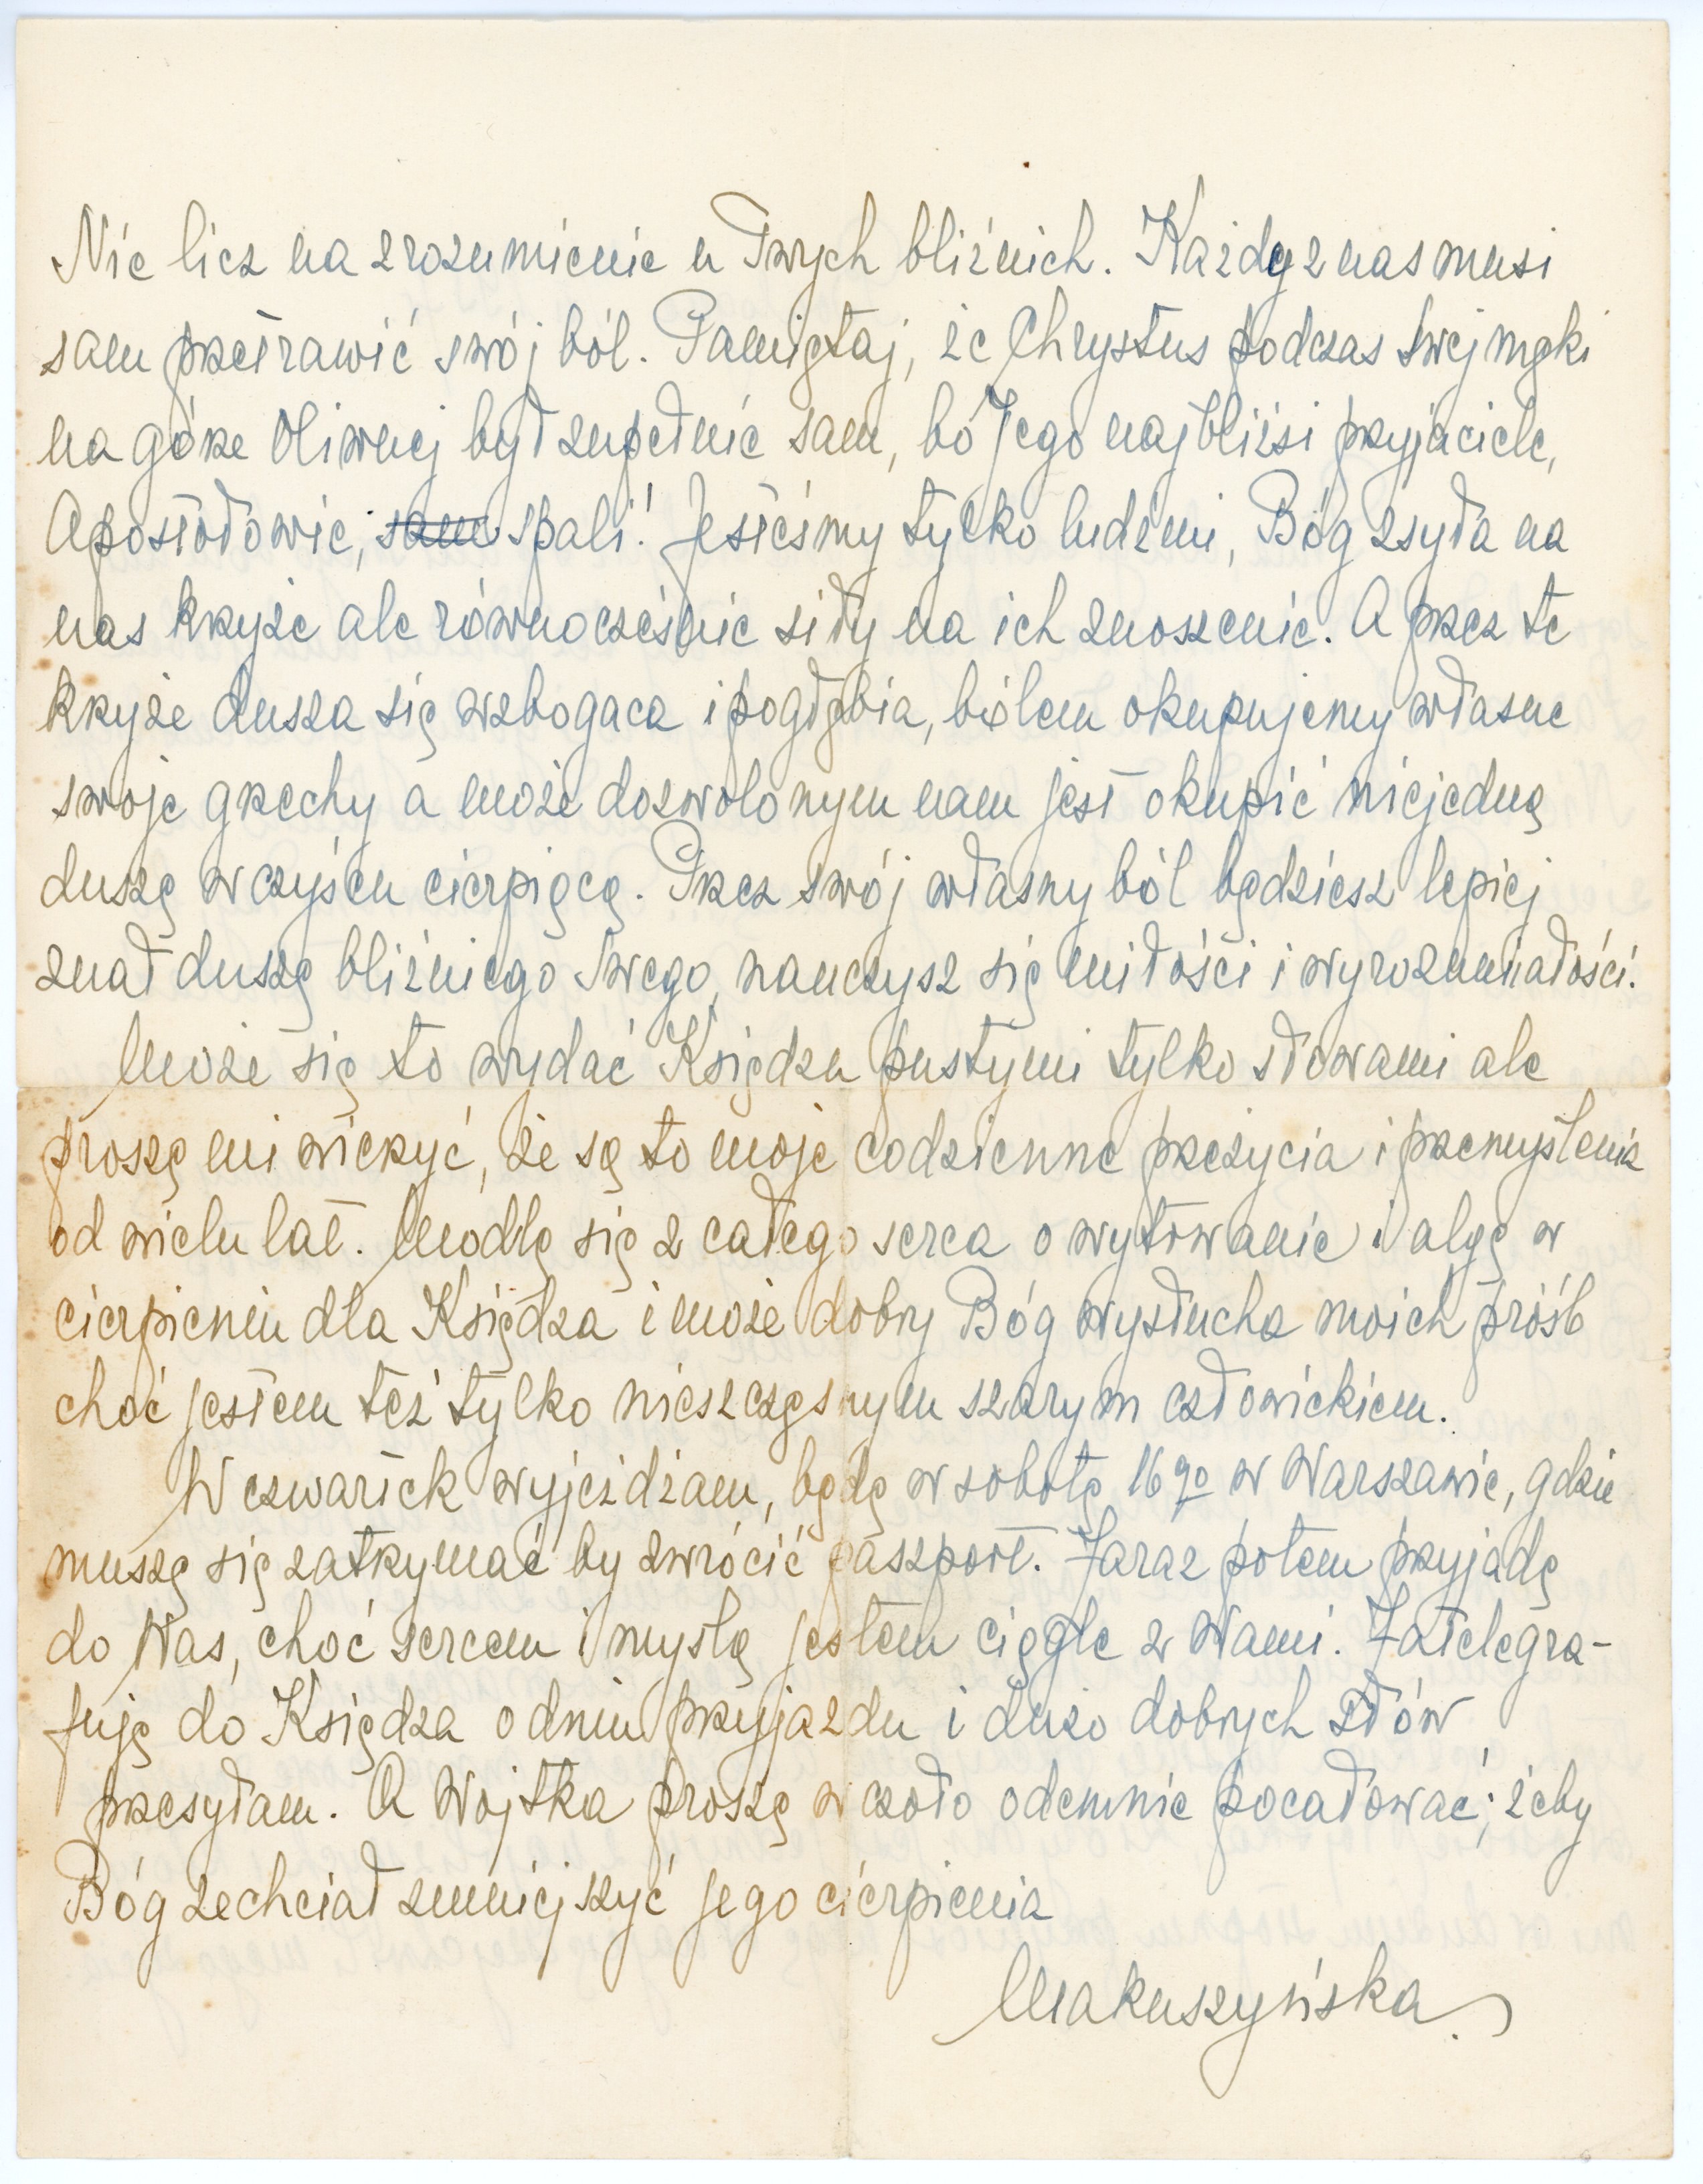 Nie licz na zrozumienie u Twych bliźnich. Każdy z nas musi
sam przetrawić swój ból. Pamiętaj, że Chrystus podczas swej męki
na górze Oliwnej był zupełnie sam, bo Jego najbliżsi przyjaciele,
Apostołowie, sam spali! Jesteśmy tylko ludźmi, Bóg zsyła na
nas krzyże ale równocześnie siły na ich znoszenie. A przez te
krzyże dusza się wzbogaca i pogłębia, bólem okupujemy własne
swoje grzechy a może dozwolonym nam jest okupić niejedną
duszę w czyścu cierpiącą. Przez swój własny ból będziesz lepiej
znał duszę bliźniego Twego, nauczysz się miłości i wyrozumiałości.
Może się to wydać Księdzu pustymi tylko słowami ale
proszę mi wierzyć, że są to moje codzienne przeżycia i przemyślenia
od wielu lat. Modlę się z całego serca o wytrwanie i ulgę w
cierpieniu dla Księdza i może dobry Bóg wysłucha moich próśb
choć jestem też tylko nieszczęsnym szarym człowiekiem.
W czwartek wyjeżdżam, będę w sobotę 16go w Warszawie, gdzie
muszę się zatrzymać by zwrócić paszport. Zaraz potem przyjadę
do Was, choć sercem i myślą jestem ciągle z Wami. Zatelegra-
fuję do Księdza o dniu przyjazdu i dużo dobrych słów
przesyłam. A Wojtka proszę w czoło odemnie pocałować; żeby
Bóg zechciał zmniejszyć jego cierpienia
Makuszyńska.